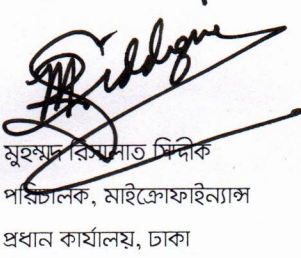 Siddiqui
মুহম্মদ রিসালাত সিদ্দীক
পরিচালক, মাইক্রোফাইন্যান্স
প্রধান কার্যালয়, ঢাকা